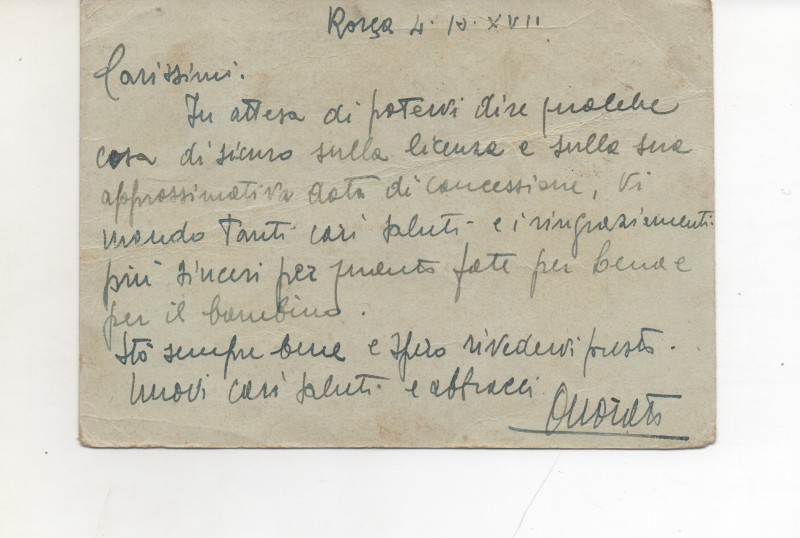 4. 10. XVII
Carissimi.
In attesa di potervi dire qualche
cosa di sicuro sulla licenza e sulla sua
approssimativa data di concessione, vi
mando tanti cari saluti e i ringraziamenti
più sinceri per quanto fate per Lena e
per il bambino.
Stò sempre bene e spero rivedervi presto.
Nuovi cari saluti e abbracci
Onorato